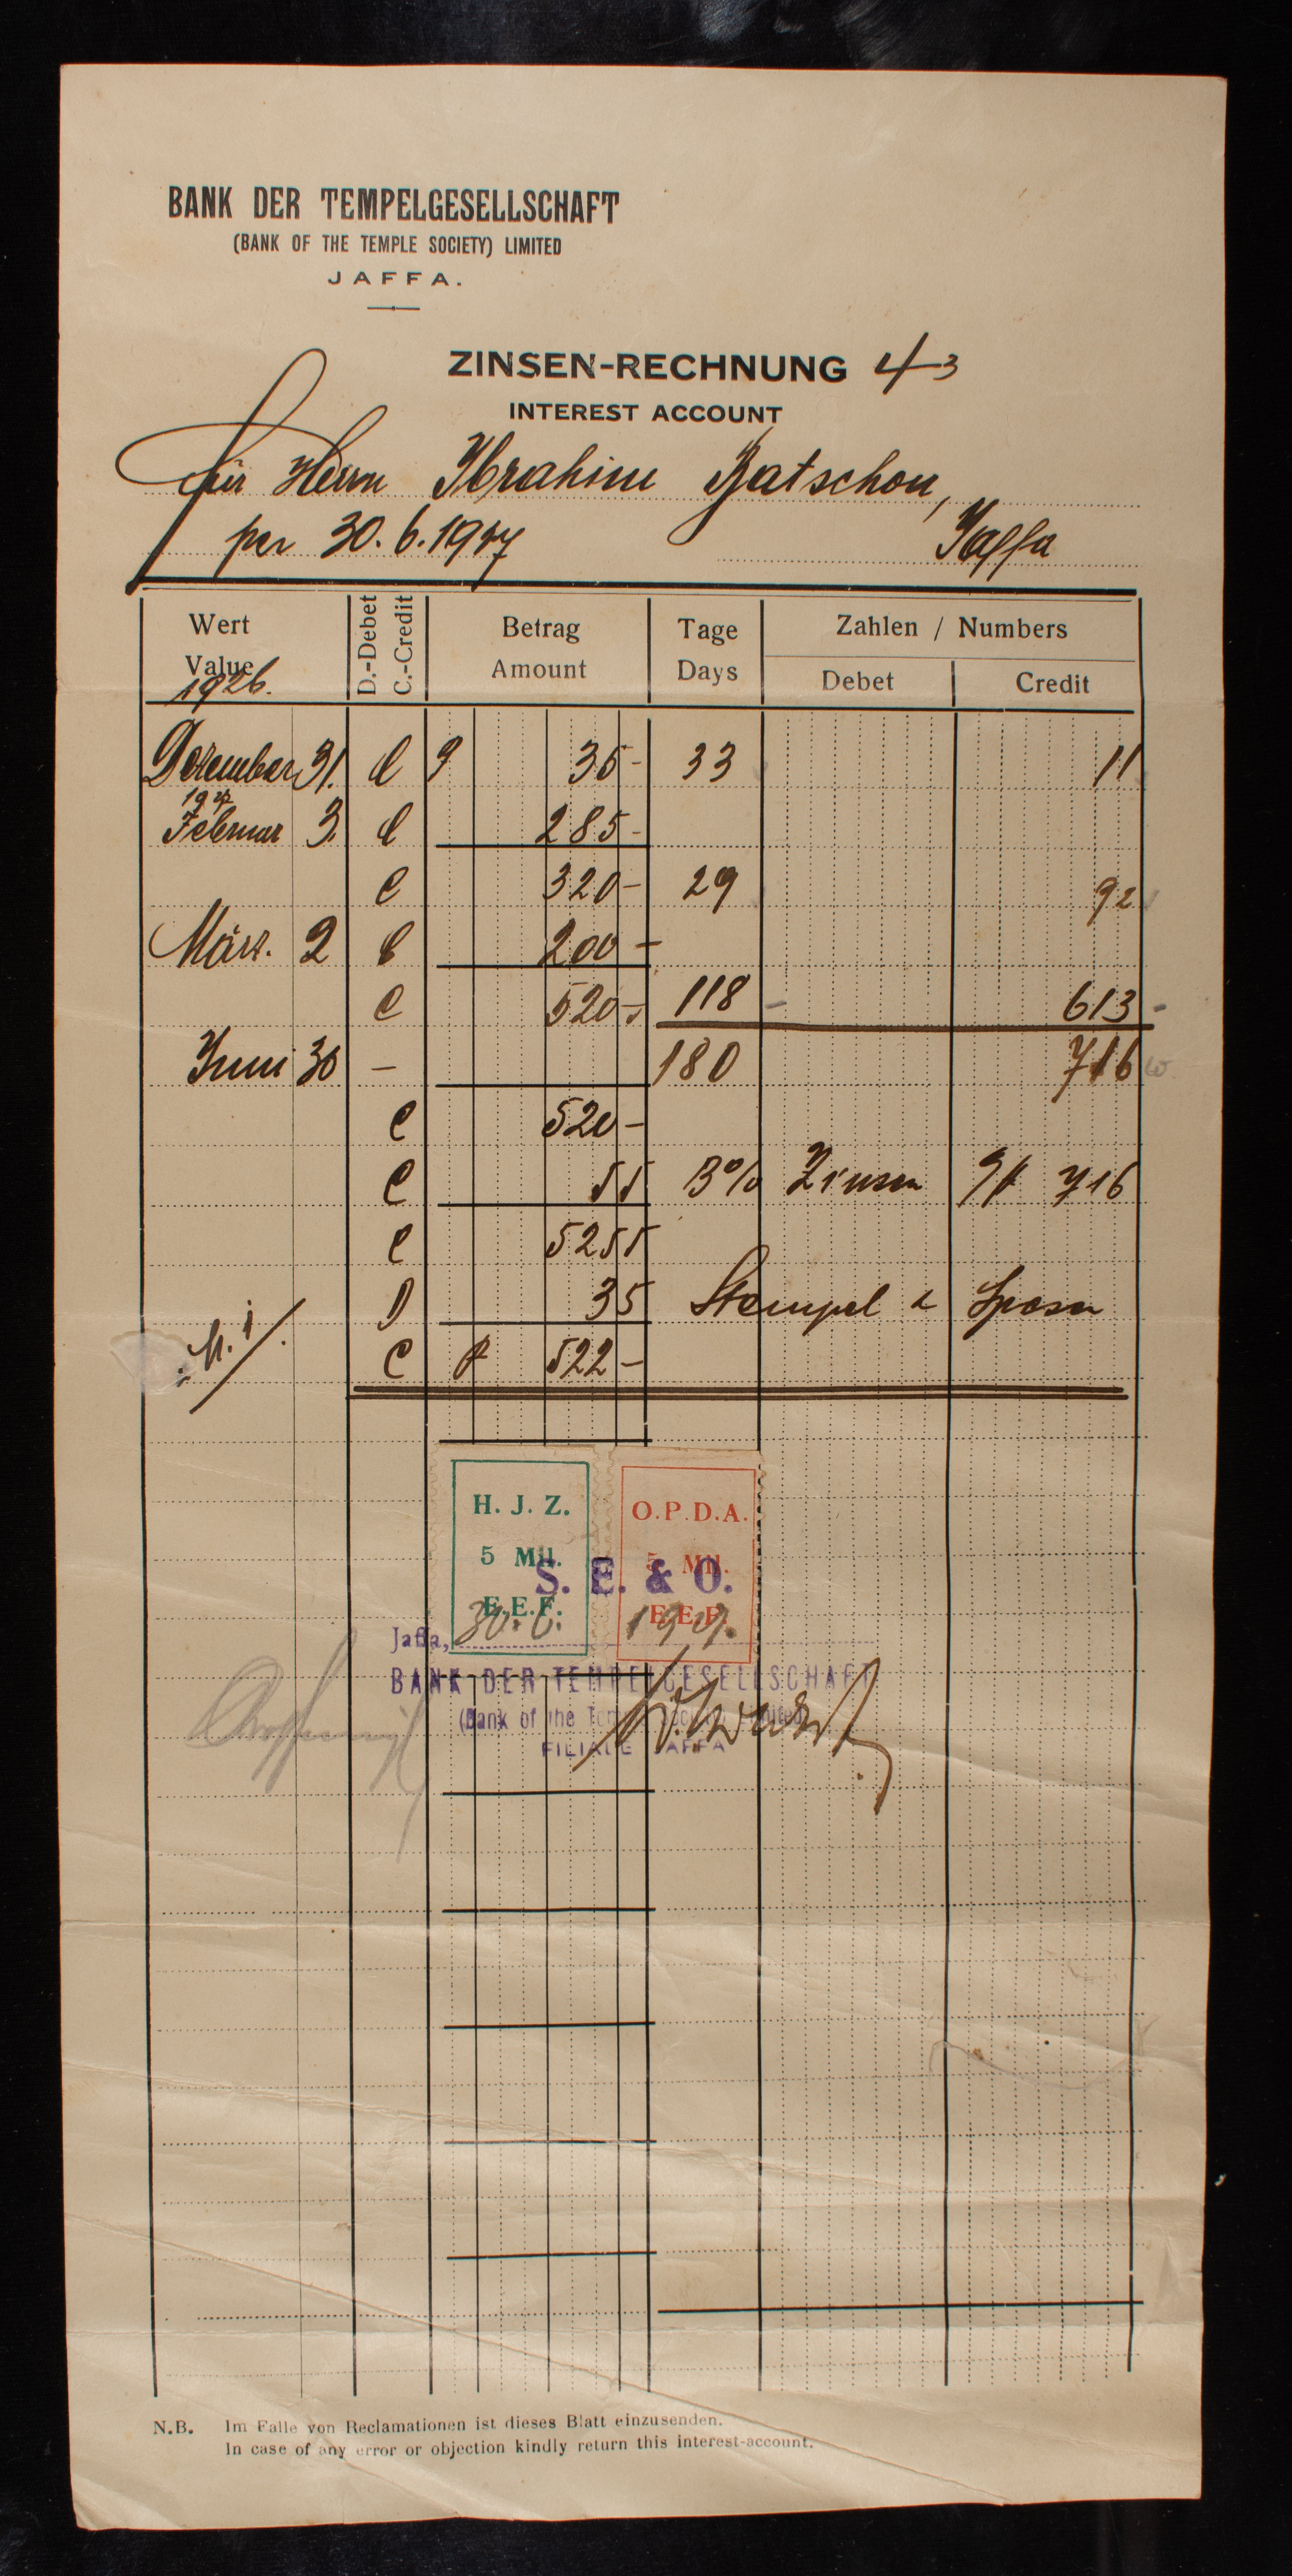 BANK DER TEMPELGESELLSCHAFT
(BANK OF THE TEMPLE SOCIETY) LIMITED
JAFFA.
ZINSEN-RECHNUNG 43
INTEREST ACCOUNT
Für Herrn Ibrahim Batschon,
per 30.6.1927 Jaffa
Wert D.-Debet C.-Credit Betrag Tage Zahlen / Numbers
Value Amount Days Debet Credit
1926.
Dezember 31. C 35- 33 11
1927
Februar 3. C 285-
C 320- 29 92
März. 2 C 200-
C 520- 118 613
Juni 30 - 180 716
C 520-
C 55 3% Zinsen 716
C 5255
D 35 Stempel & Spesen
C 522-
H. J. Z. O.P.D.A.
5 Mil. 5 Mil.
S. E. & O.
E.E.F. E.E.F.
Jaffa, 30.6. 1927.
BANK DER TEMPELGESELLSCHAFT
(Bank of the Temple Society) Limited
FILIALE JAFFA
N.B. Im Falle von Reclamationen ist dieses Blatt einzusenden.
In case of any error or objection kindly return this interest-account.